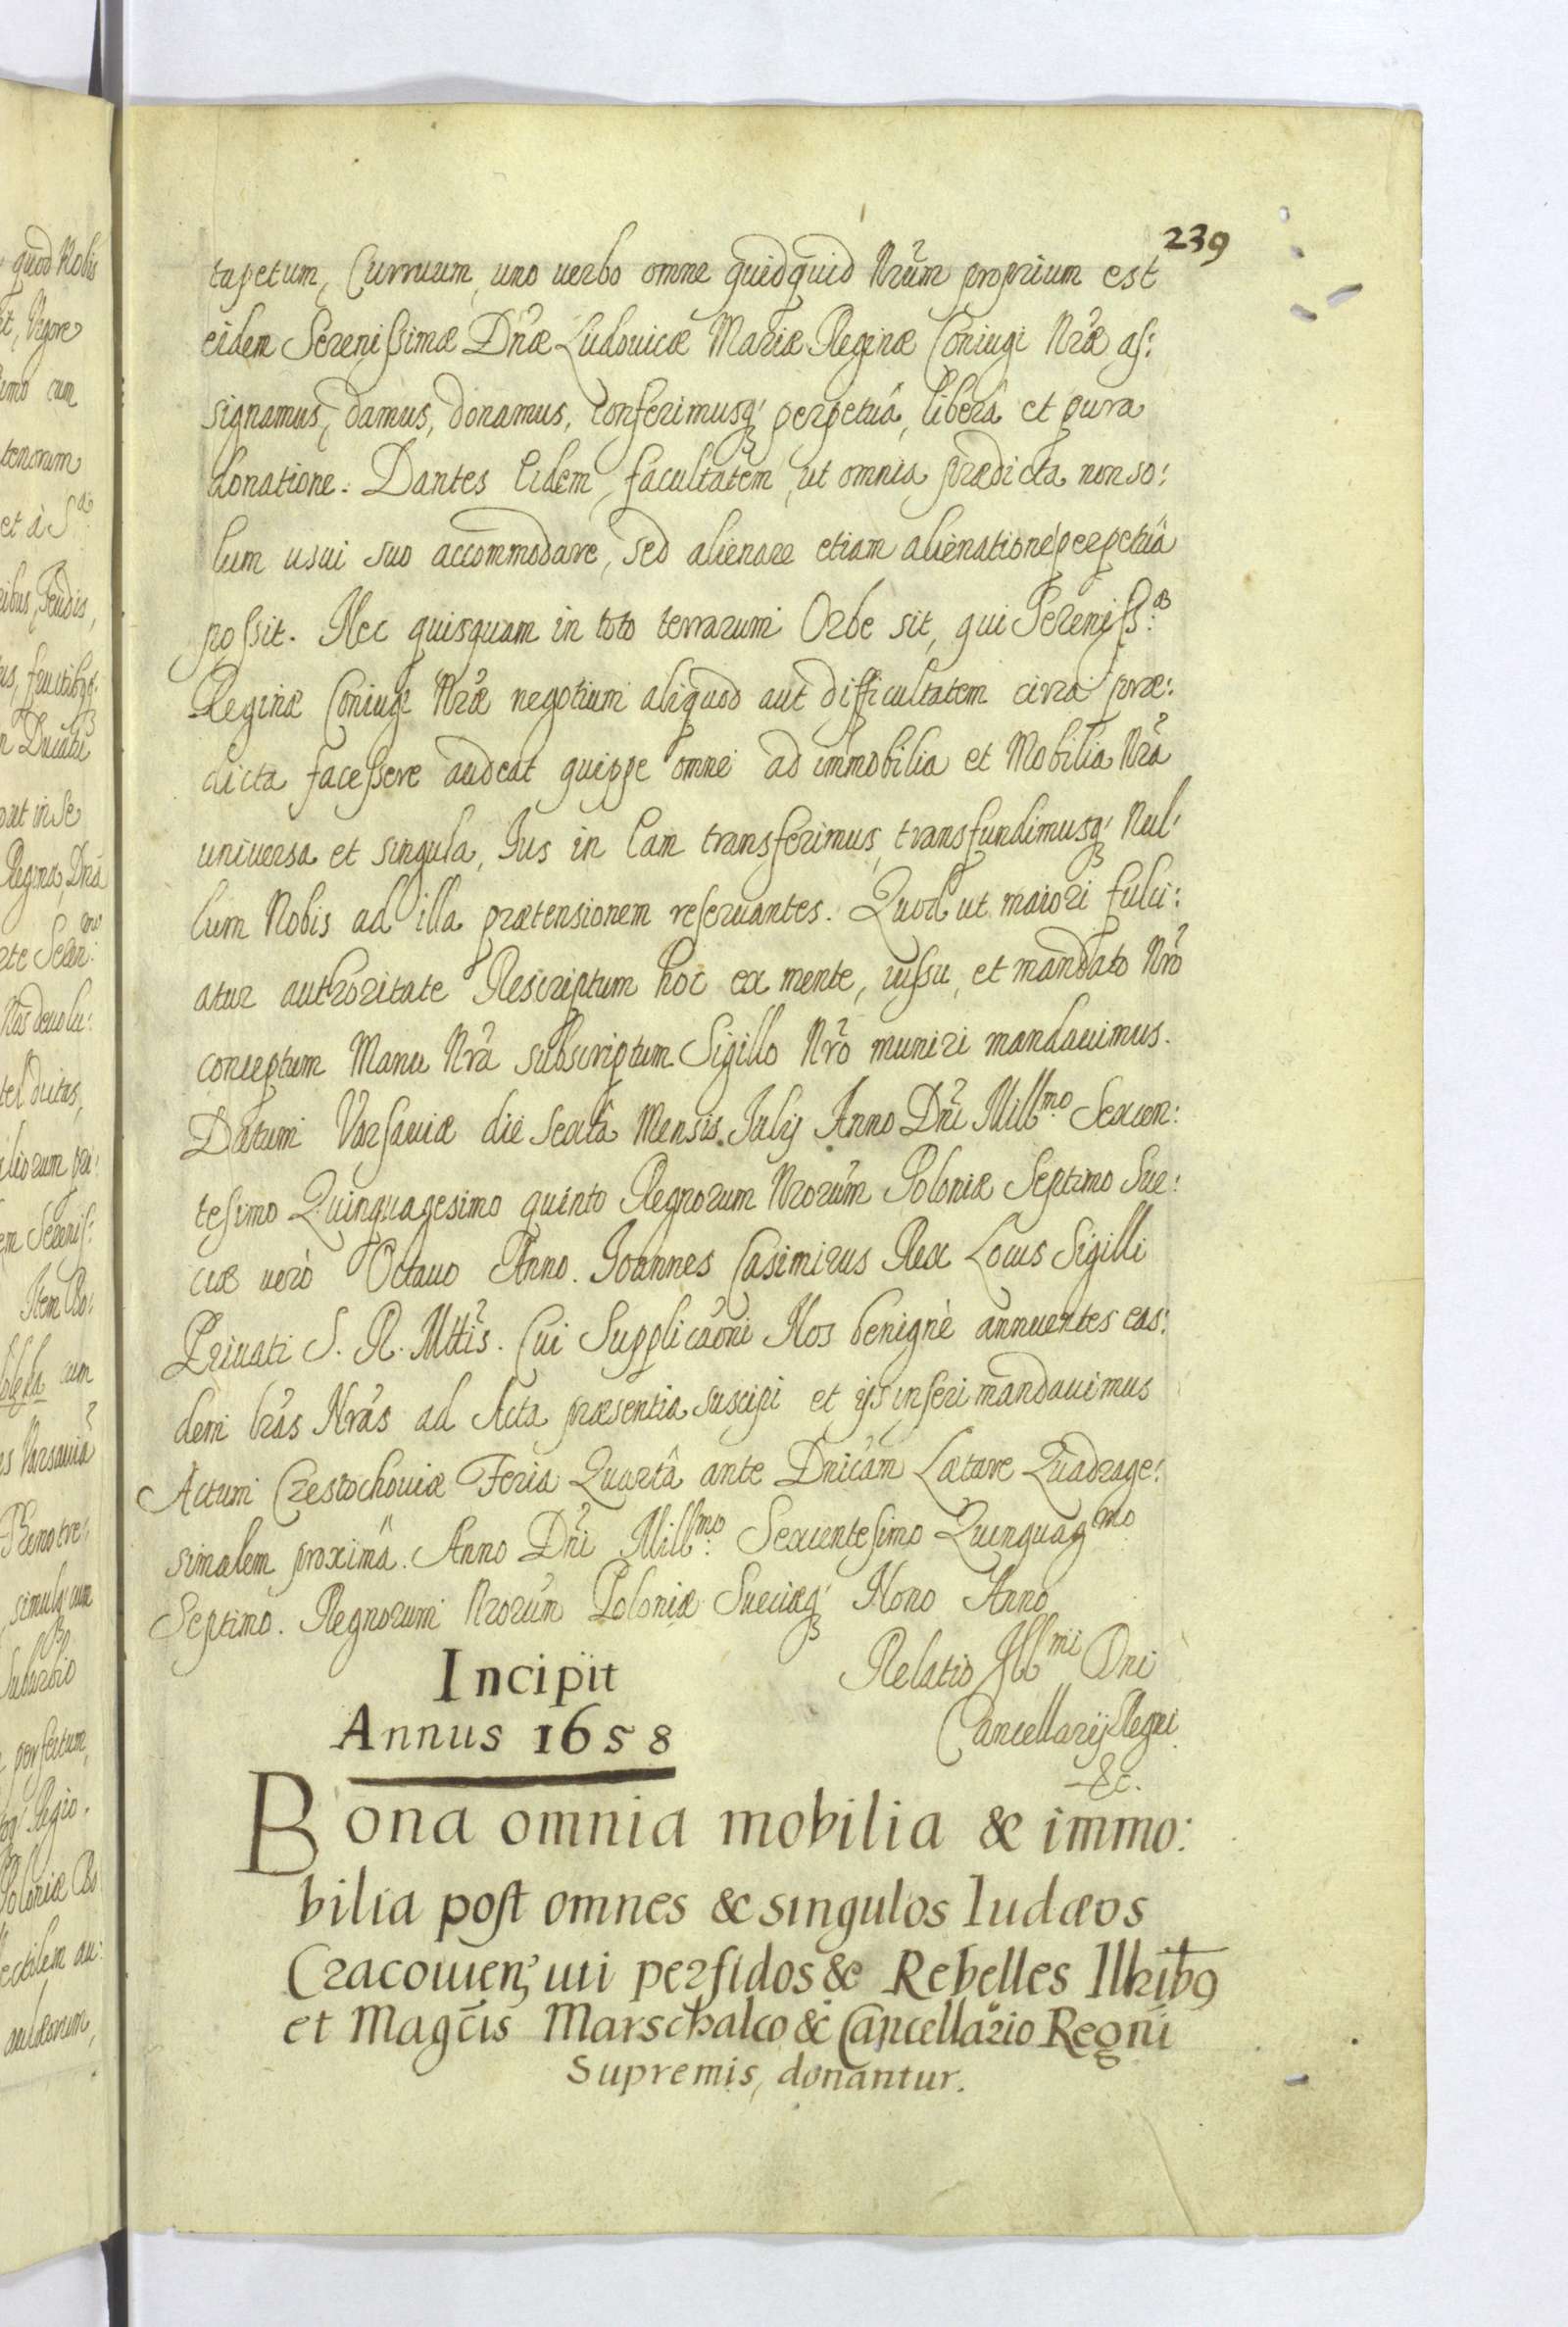 239
tapetum, Curruum, uno uerbo omne quidquid Nrũm proprium est
eidem Serenissimæ Dnæ Ludouicæ Mariæ Reginæ Coniugi Nræ as:
signamus, damus, donamus, conferimusq' perpetuâ, liberâ et pura
donatione. Dantes Eidem, facultatem, ut omnia prædicta non so:
lum usui suo accommodare, sed alienare etiam alienatione perpetuâ
possit. Nec quisquam in toto terrarum Orbe sit, qui Sereniss:æ
Reginæ Coniugi Nræ negotium aliquod aut difficultatem circa præ:
dicta facessere audeat quippe omne ad immobilia et Mobilia Nra
universa et singula, Ius in Eam transferimus, transfundimusq' Nul:
lum Nobis ad illa prætensionem reseruantes. Quod ut maiori fulci:
atur authoritate Rescriptum hoc ex mente, iussu, et mandato Nro
conceptum Manu Nra subscriptum Sigillo Nro muniri mandauimus.
Datum Varsauiæ die sextâ Mensis Iulij Anno Dni Mill:mo Sexcen:
tesimo Quinquagesimo quinto Regnorum Nrorum Poloniæ Septimo Sue:
ciæ uerò Octauo Anno. Ioannes Casimirus Rex Locus Sigilli
Priuati S. R. Mttis. Cui Supplicãoni Nos benignè annuentes eas:
dem lrãs Nrãs ad Acta præsentia suscipi et ijs inseri mandauimus
Actum Czestochouiæ Feria Quartâ ante Dnicãm Lætare Quadrage:
simalem proximâ. Anno Dni Mill:mo Sexcentesimo Quinquag:mo
Septimo. Regnorum Nrorũm Poloniæ Sueciæq' Nono Anno
Relatio Ill:mi Dni
Cancellarij Regni
&c.
Incipit
Annus 1658
Bona omnia mobilia & immo:
bilia post omnes & singulos Iudæos
Cracouien, uti perfidos & Rebelles Illribꝰ
et Magcis Marschalco & Cancellario Regni
Supremis, donantur.